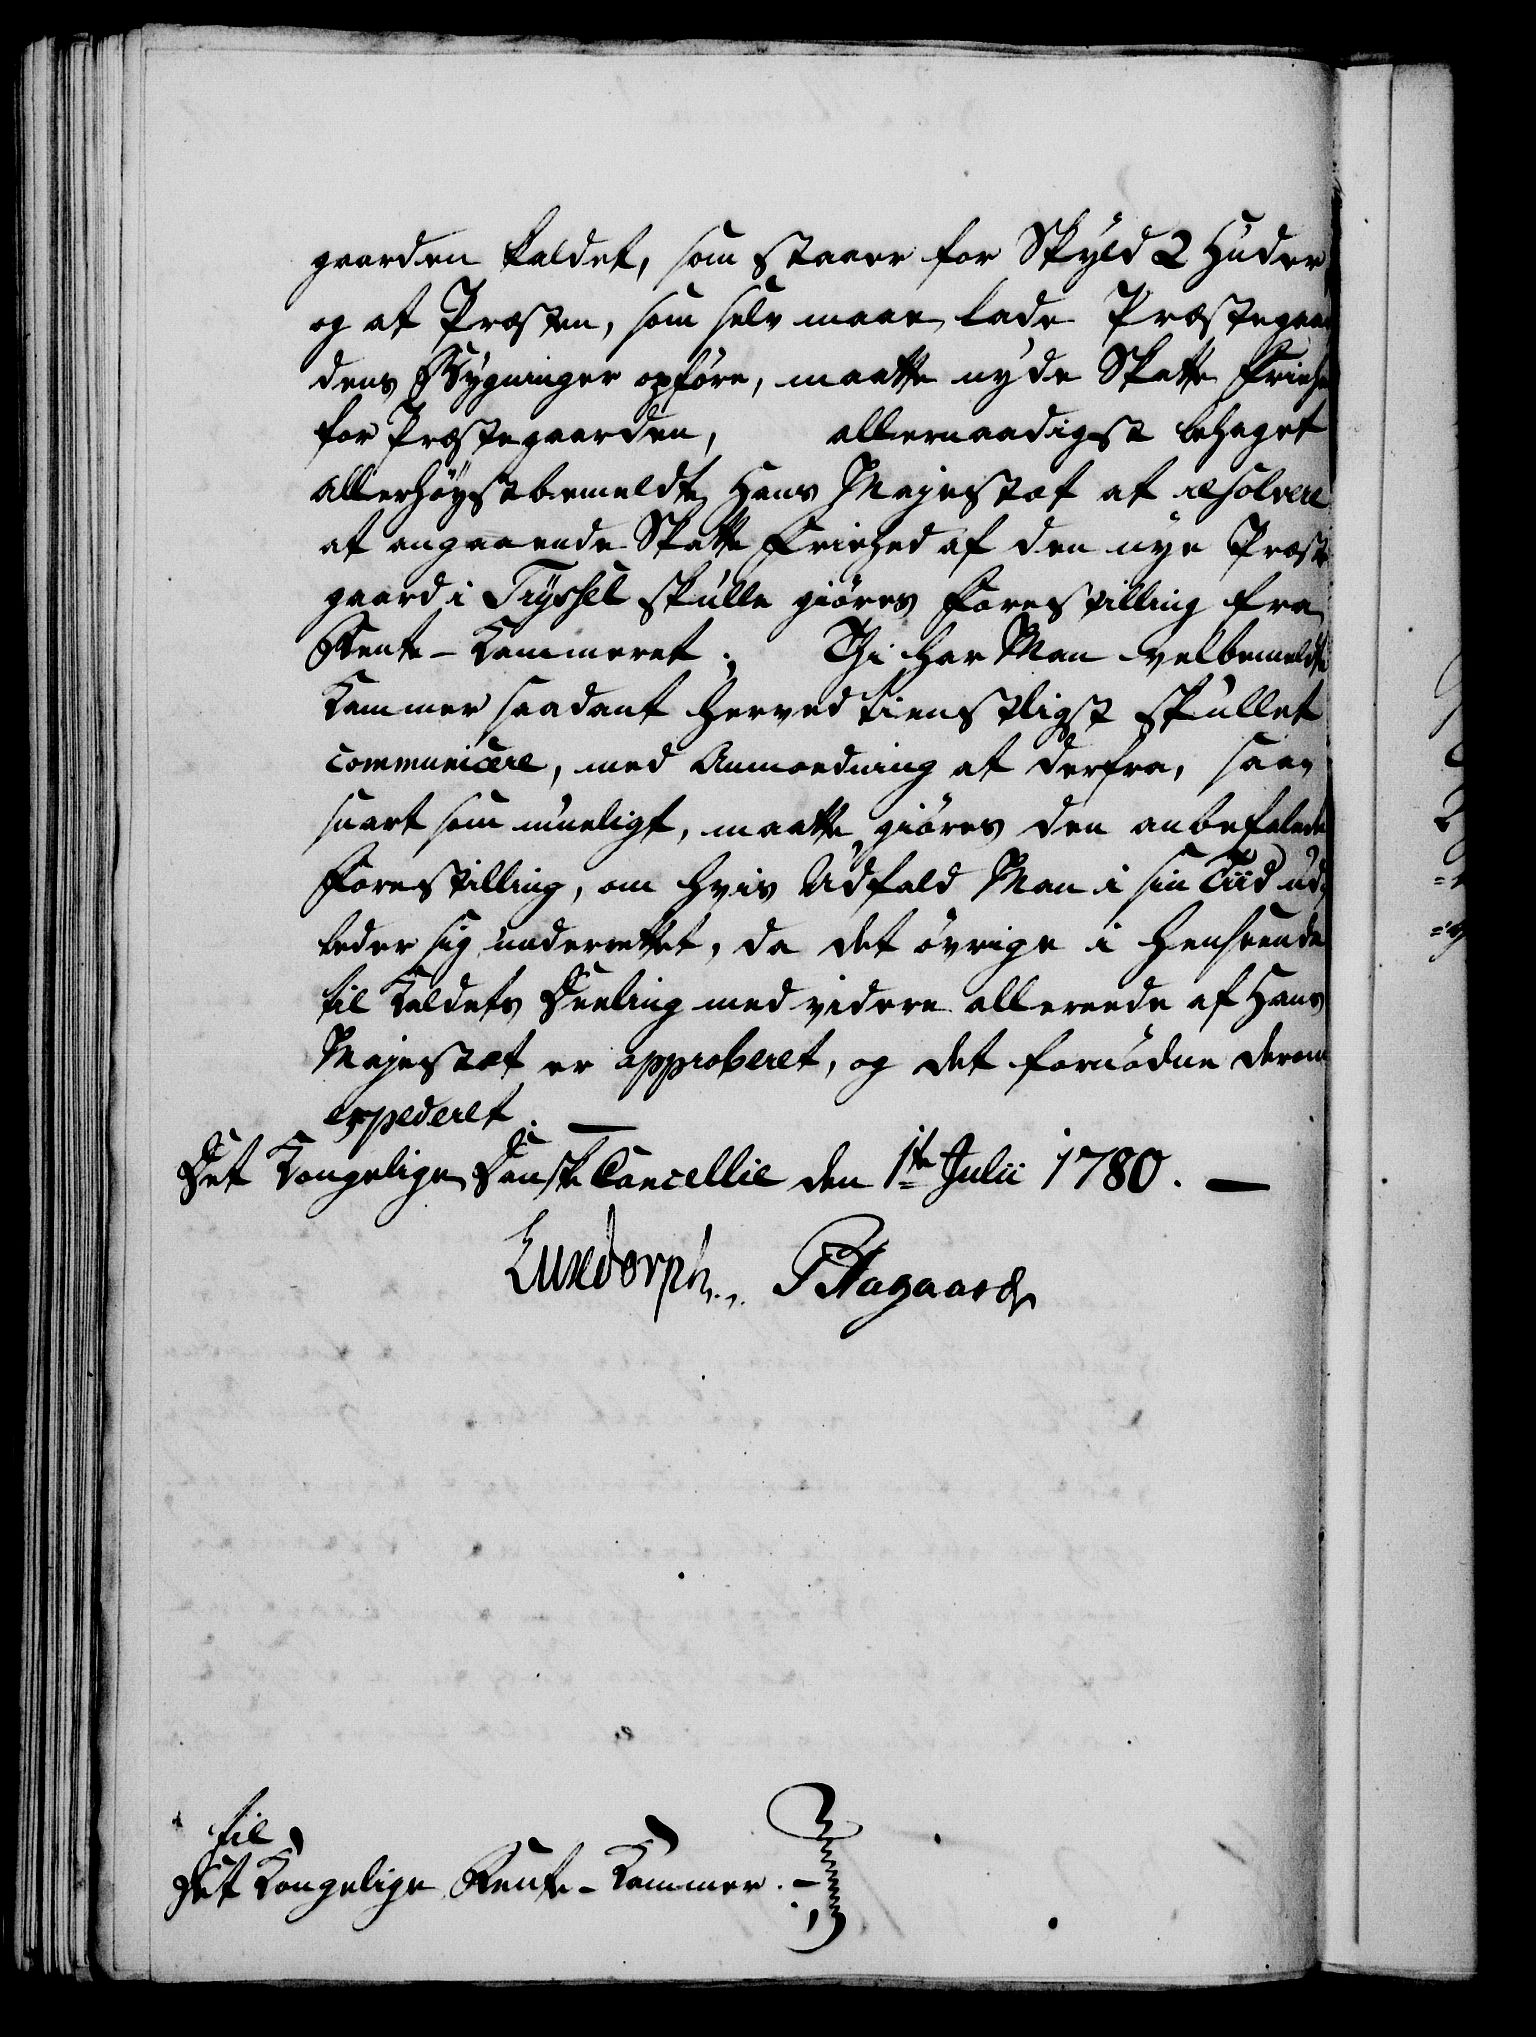 gaarden kaldet, som staaer for Skyld 2 Huder
og at Præsten, som selv maae lade Præstegaar
dens Bygninger opføre, maatte nyde Skatte Friehe
for Præstegaarden, allernaadigst behaget
Allerhøystbemeldte Hans Majestæt at resolvere
at angaaende Skatte Friehed af den nye Præste
gaard i Tryssel skulle giøres Forestilling fra
Rente-Kammeret; Thi har Man velbemeldte
Kammer saadant herved tienstligst skullet
communicere, med Anmodning at derfra, saa
snart som mueligt, maatte giøres den anbefalede
Forestilling, om hvis Udfald Man i sin Tiid ud,
beder sig underrettet, da det øvrige i Henseende
til Kaldets Deeling med videre allereede af Hans
Majestæt er approberet, og det fornødne derom
expederet.
Det Kongelige Danske Cancellie den 1te Julii 1780.
Luxdorph.
Aagaard
til
Det Kongelige Rente-Kammer.